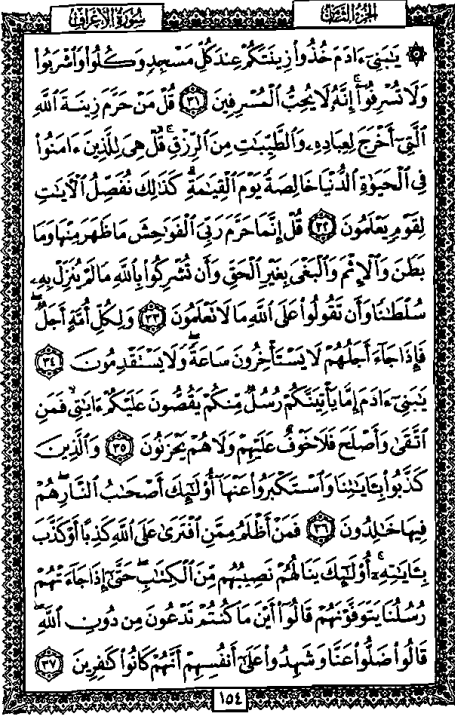 سُورَةُ الأَعْرَافِ الجُزْءُ الثَّامِنُ
۞ يَٰبَنِىٓ ءَادَمَ خُذُوا۟ زِينَتَكُمْ عِندَ كُلِّ مَسْجِدٍ وَكُلُوا۟ وَٱشْرَبُوا۟
وَلَا تُسْرِفُوٓا۟ ۚ إِنَّهُۥ لَا يُحِبُّ ٱلْمُسْرِفِينَ ٣١ قُلْ مَنْ حَرَّمَ زِينَةَ ٱللَّهِ
ٱلَّتِىٓ أَخْرَجَ لِعِبَادِهِۦ وَٱلطَّيِّبَٰتِ مِنَ ٱلرِّزْقِ ۚ قُلْ هِىَ لِلَّذِينَ ءَامَنُوا۟
فِى ٱلْحَيَوٰةِ ٱلدُّنْيَا خَالِصَةً يَوْمَ ٱلْقِيَٰمَةِ ۗ كَذَٰلِكَ نُفَصِّلُ ٱلْءَايَٰتِ
لِقَوْمٍ يَعْلَمُونَ ٣٢ قُلْ إِنَّمَا حَرَّمَ رَبِّىَ ٱلْفَوَٰحِشَ مَا ظَهَرَ مِنْهَا وَمَا
بَطَنَ وَٱلْإِثْمَ وَٱلْبَغْىَ بِغَيْرِ ٱلْحَقِّ وَأَن تُشْرِكُوا۟ بِٱللَّهِ مَا لَمْ يُنَزِّلْ بِهِۦ
سُلْطَٰنًا وَأَن تَقُولُوا۟ عَلَى ٱللَّهِ مَا لَا تَعْلَمُونَ ٣٣ وَلِكُلِّ أُمَّةٍ أَجَلٌ ۖ
فَإِذَا جَآءَ أَجَلُهُمْ لَا يَسْتَأْخِرُونَ سَاعَةً ۖ وَلَا يَسْتَقْدِمُونَ ٣٤
يَٰبَنِىٓ ءَادَمَ إِمَّا يَأْتِيَنَّكُمْ رُسُلٌ مِّنكُمْ يَقُصُّونَ عَلَيْكُمْ ءَايَٰتِى ۙ فَمَنِ
ٱتَّقَىٰ وَأَصْلَحَ فَلَا خَوْفٌ عَلَيْهِمْ وَلَا هُمْ يَحْزَنُونَ ٣٥ وَٱلَّذِينَ
كَذَّبُوا۟ بِـَٔايَٰتِنَا وَٱسْتَكْبَرُوا۟ عَنْهَآ أُو۟لَٰٓئِكَ أَصْحَٰبُ ٱلنَّارِ ۖ هُمْ
فِيهَا خَٰلِدُونَ ٣٦ فَمَنْ أَظْلَمُ مِمَّنِ ٱفْتَرَىٰ عَلَى ٱللَّهِ كَذِبًا أَوْ كَذَّبَ
بِـَٔايَٰتِهِۦٓ ۚ أُو۟لَٰٓئِكَ يَنَالُهُمْ نَصِيبُهُم مِّنَ ٱلْكِتَٰبِ ۖ حَتَّىٰٓ إِذَا جَآءَتْهُمْ
رُسُلُنَا يَتَوَفَّوْنَهُمْ قَالُوٓا۟ أَيْنَ مَا كُنتُمْ تَدْعُونَ مِن دُونِ ٱللَّهِ ۖ
قَالُوا۟ ضَلُّوا۟ عَنَّا وَشَهِدُوا۟ عَلَىٰٓ أَنفُسِهِمْ أَنَّهُمْ كَانُوا۟ كَٰفِرِينَ ٣٧
١٥٤